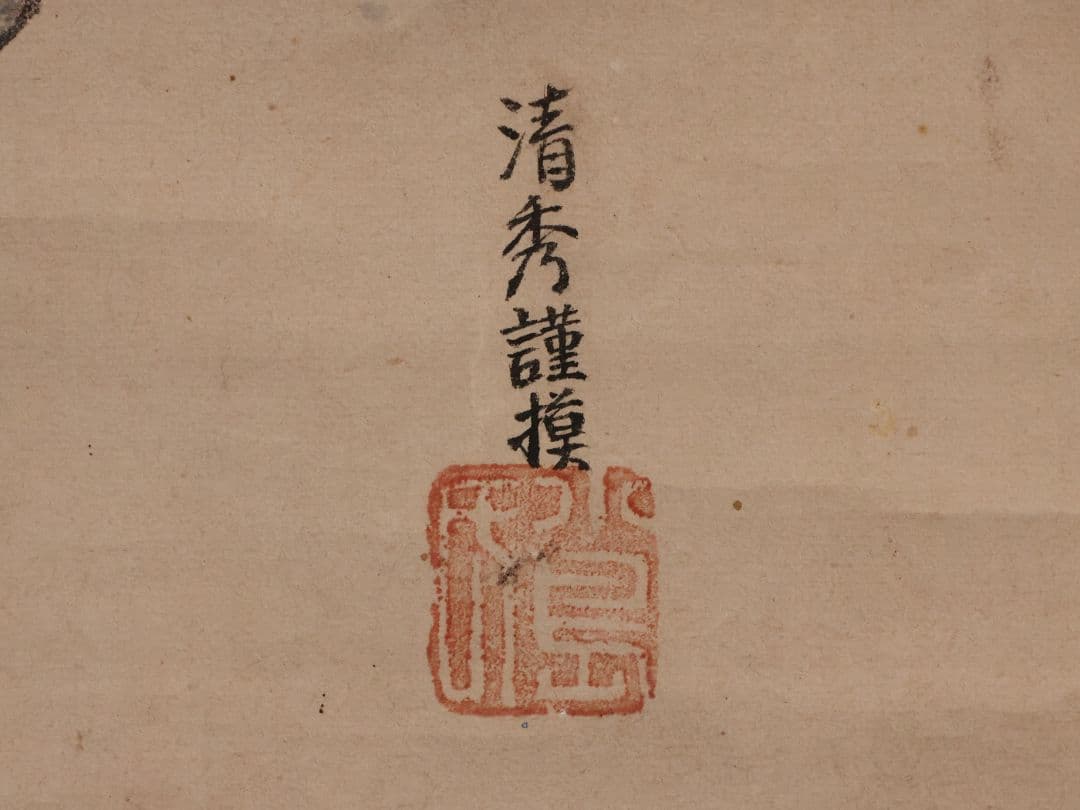 清秀謹摸